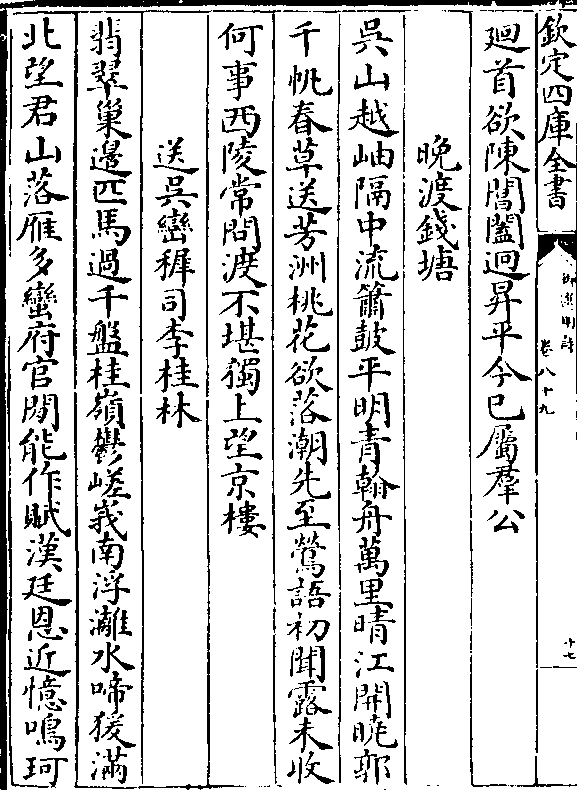 欽定四庫全書
御選明詩
卷八十九
十七
廻首欲陳閶闔迥昇平今已屬羣公
晚渡錢塘
吳山越岫隔中流簫鼓平明青翰舟萬里晴江開曉郭
千帆春草送芳洲桃花欲落潮先至鶯語初聞露未收
何事西陵常問渡不堪獨上望京樓
送吳巒穉司李桂林
翡翠巢邊匹馬過千盤桂嶺鬱嵯峩南浮灕水啼猨滿
北望君山落雁多蠻府官閒能作賦漢廷恩近憶鳴珂